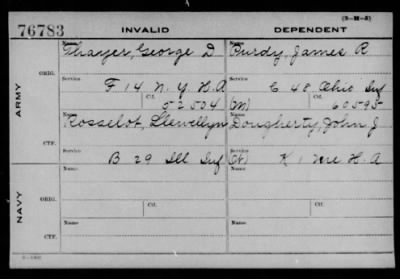 (3-M-3)
76783 INVALID DEPENDENT
Name Name
Thayer, George D Purdy, James R
ORIG. Service Service
F 14 N.Y. H.A C 48 Ohio Inf
Ctf. 52504 (M) Ctf. 60595
ARMY
Name Name
Rosselot, Llewellyn Dougherty, John J
CTF. Service Service
B 29 Ill Inf K 1 Me H.A
Name Name
ORIG. Service Ctf. Service Ctf.
NAVY
Name Name
CTF. Service Service